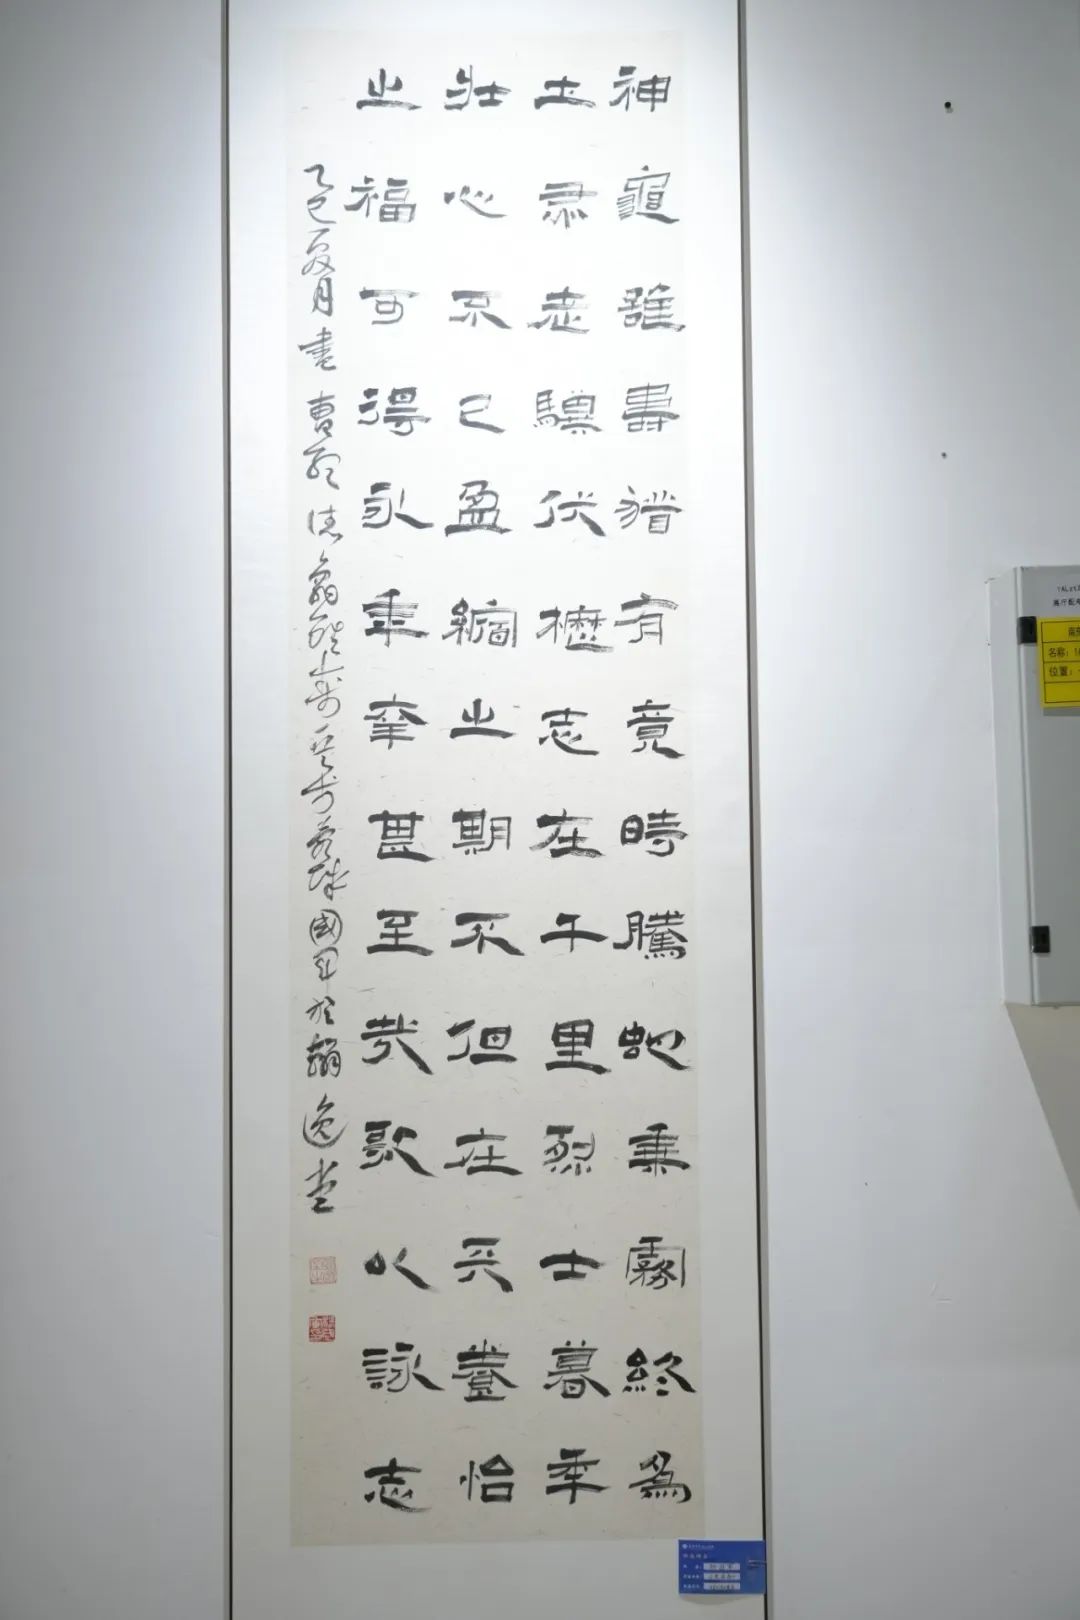 神龜雖壽猶有竟時騰蛇乘霧終為
土灰老驥伏櫪志在千里烈士暮年
壯心不已盈縮之期不但在天養怡
之福可得永年幸甚至哉歌以詠志
乙巳夏月書曹操詩龜雖壽國軍於翰逸堂
名称：
位置：